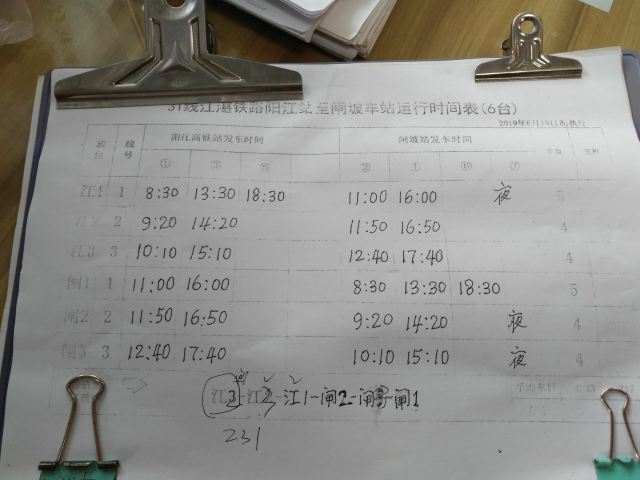 31线江湛铁路阳江站至闸坡车站运行时间表(6台)
2019年6月15日起执行
班位 线号 阳江高铁站发车时间 闸坡站发车时间
① ③ ⑦
江1 1 8:30 13:30 18:30 11:00 16:00 夜 5
江2 2 9:20 14:20 11:50 16:50 4
江3 3 10:10 15:10 12:40 17:40 4
闸1 1 11:00 16:00 8:30 13:30 18:30 5
闸2 2 11:50 16:50 9:20 14:20 夜 4
闸3 3 12:40 17:40 10:10 15:10 夜 4
江3-江2-江1-闸2-闸3-闸1
231